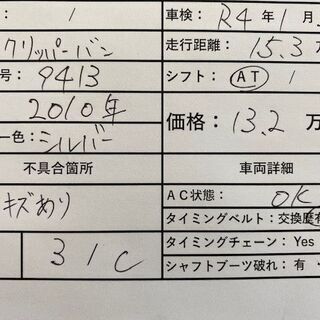 1 車検: R4年1月
クリッパーバン 走行距離: 15.3
号: 9413 シフト: AT
2010年 価格: 13.2 万
ー色: シルバー
不具合箇所 車両詳細
キズあり AC状態: OK
タイミングベルト: 交換歴有
31C タイミングチェーン: Yes
シャフトブーツ破れ: 有